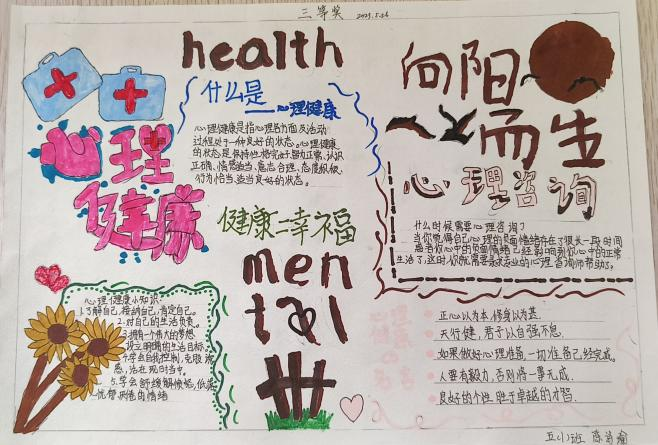 三等奖 2023.5.26
health
心理
健康
什么是
——心理健康
心理健康是指心理各方面及活动
过程处于一种良好的状态。心理健康
的状态是保持性格完好、智力正常、认识
正确、情感适当、意志合理、态度积极、
行为恰当、适当良好的状态。
健康=幸福
men
tal
向阳
而生
心理咨询
什么时候需要心理咨询？
当你觉得自己心理的负面情绪存在了很长一段时间
或者你心中的负面情绪已经影响到你心中的正常
生活了,这时,你就需要寻求专业的心理咨询师帮助了。
心理健康小知识
1.了解自己,接纳自己,肯定自己。
2.对自己的生活负责。
3.拥有个伟大的梦想
设立明确的生活目标。
4.学会自我控制,克服
惑,活在现时当中。
5.学会舒缓解倾给,低落
忧郁 的情绪
正心以为本,修身以为基
天行健,君子以自强不息.
如果做好心理准备,一切准备已经完成。
人要有毅力,否则将一事无成.
良好的个性胜于卓越的才智.
五(1)班 陈